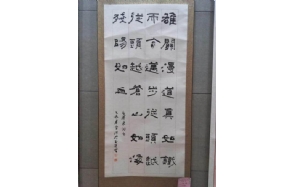 雄關漫道真如鐵
而今邁步從頭越
從頭越蒼山如海
殘陽如血